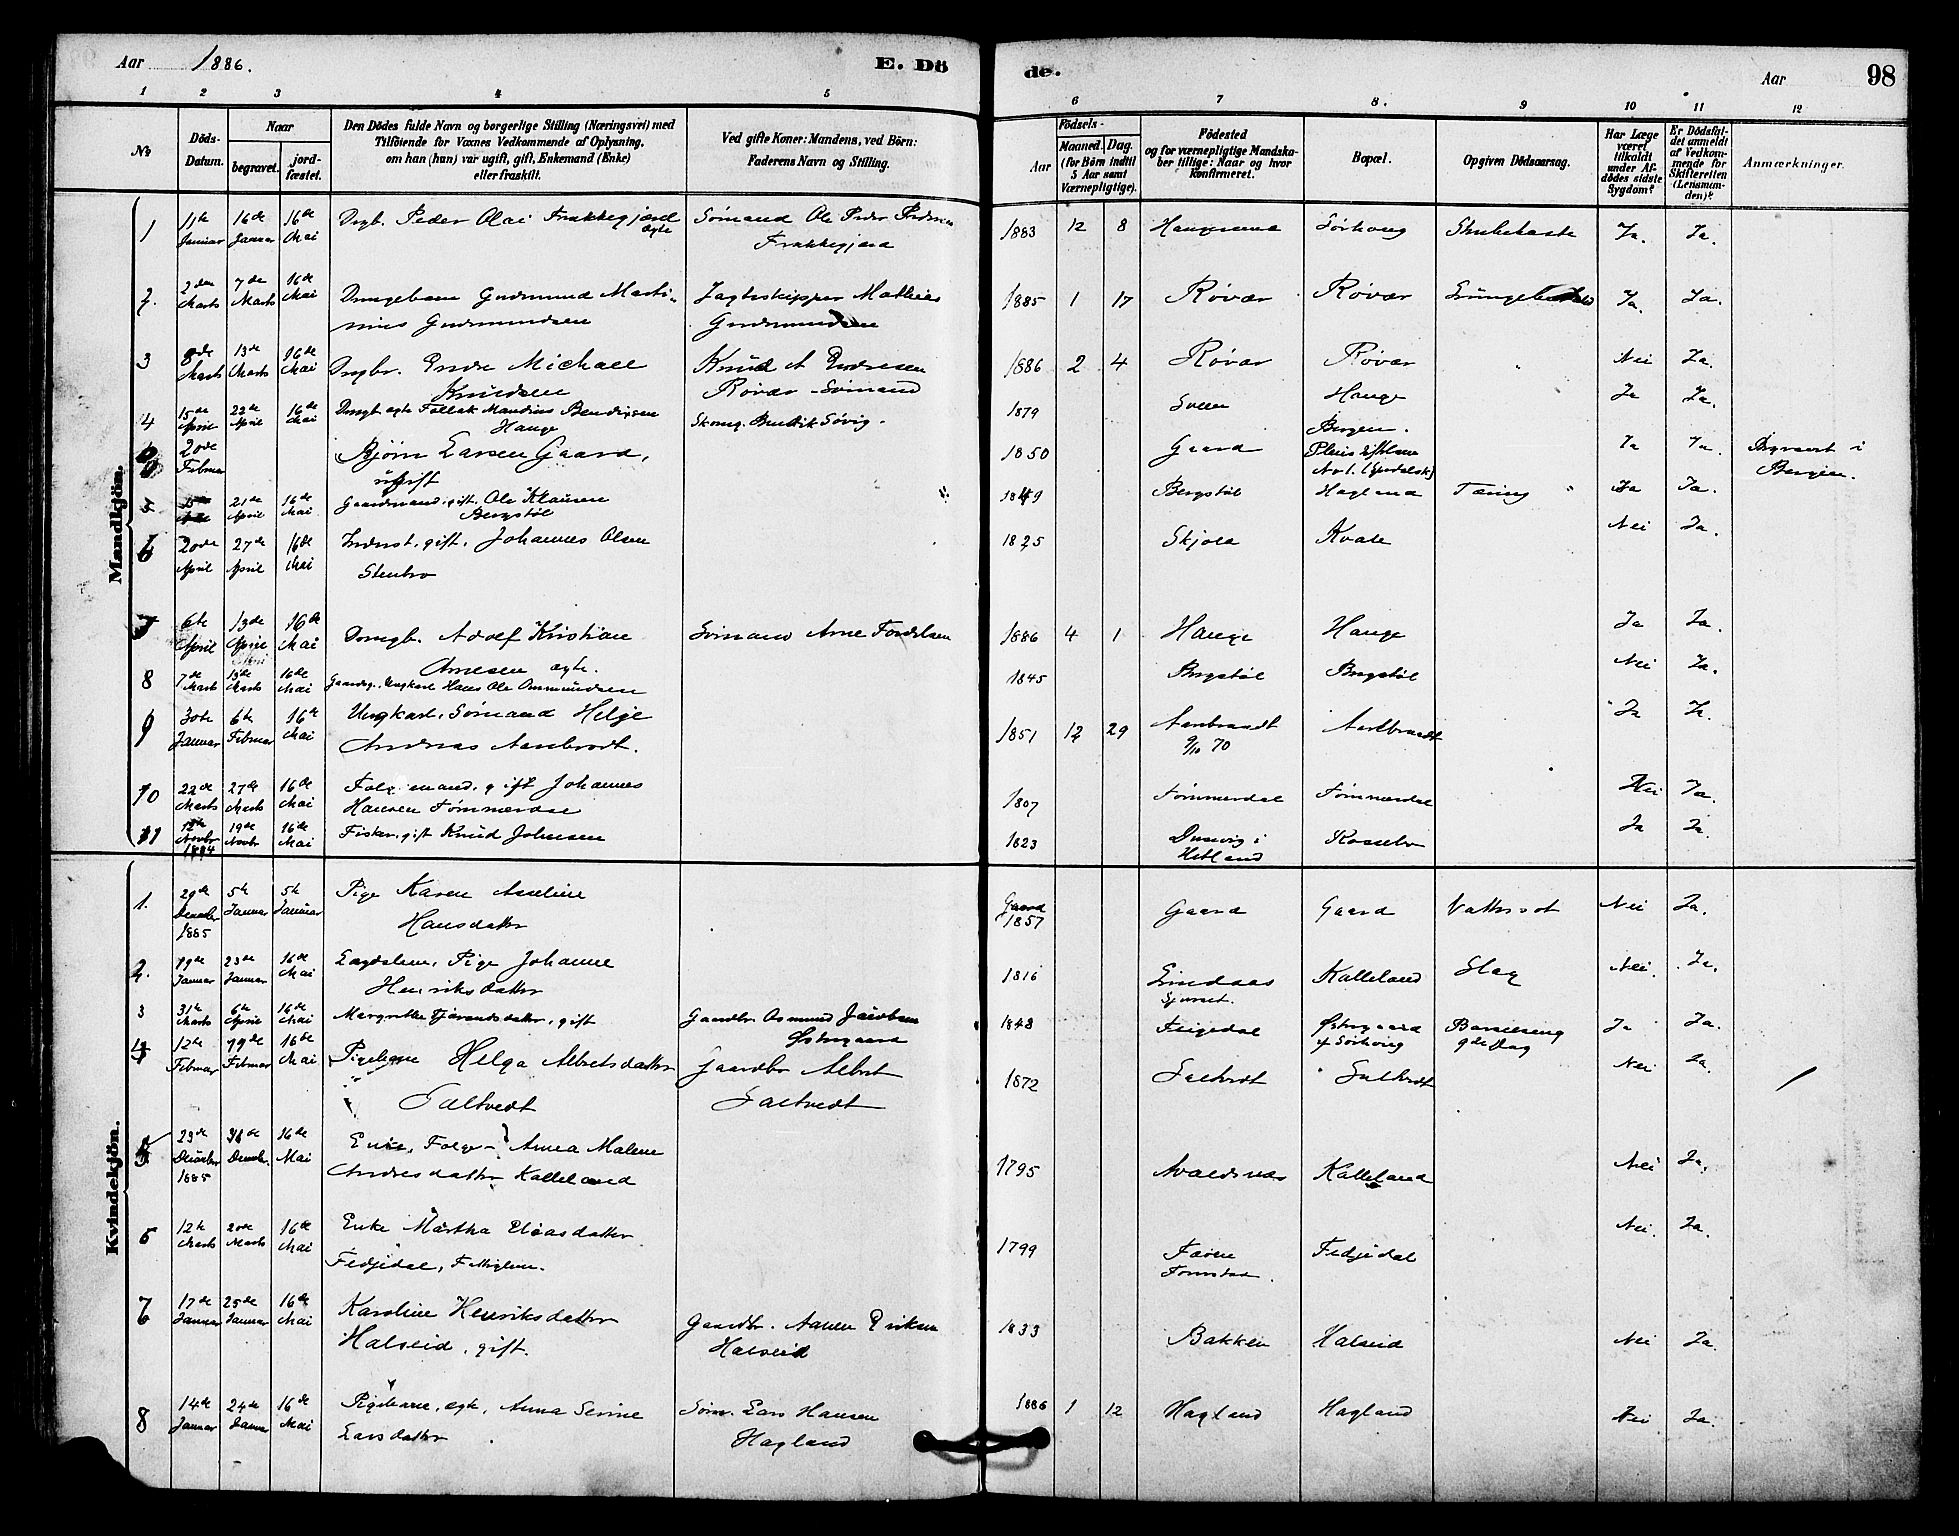 Aar 1886. E. Dö de. Aar 98
1 2 3 4 5 6 7 8. 9 10 11 12
No Döds-Datum. Naar begravet. jordfæstet. Den Dödes fulde Navn og borgerlige Stilling (Næringsvei) med Tilföiende for Voxnes Vedkommende af Oplysning, om han (hun) var ugift, gift, Enkemand (Enke) eller fraskilt. Ved gifte Koner: Mandens, ved Börn: Faderens Navn og Stilling. Födsels- Aar Maaned. Dag. (for Börn indtil 5 Aar samt Værnepligtige). Födested og for værnepligtige Mandskaber tillige: Naar og hvor Konfirmeret. Bopæl. Opgiven Dödsaarsag. Har Læge været tilkaldt under Afdödes sidste Sygdom? Er Dödsfaldet anmeldt af Vedkommende for Skifteretten (Lensmanden)? Anmærkninger.
Mandkjön.
1 11te Januar 16de Januar 16de Mai Drgb. Peder Olai Frakkegjærd ægte Sömand Ole Peder Pedersen Frakkegjerd 1883 12 8 Haugesund Sörhoug Ja. Ja.
2. 2den Marts 7de Marts 16de Mai Drengebarn Gudmund Martinius Gudmundsen Jagtskipper Mathias Gudmundsen 1885 1 17 Rövær Rövær Ja. Ja.
3 8de Marts 13de Marts 16de Mai Drgbr. Endre Michael Knudsen Knud A Endresen Rövær - Sömand 1886 2 4 Rövær Rövær Nei Ja.
4 15de April 22de April 16de Mai Drngb ægte Bendixsen Hauge Skomg. Bendik Søvig. 1879 Sveen Hauge Ja Ja.
20de Februar Bjørn Larsen Gaard, ugift 1850 Gaard Bergen. Ja Ja. Begravet i Bergen.
5. 21de April 16de Mai Gaardmand, gift, Ole Klausen Bergstøl 1849 Bergstøl Hagland Tæring Ja Ja.
6 20de April 27de April 16de Mai Inderst, gift, Johannes Olsen Stenbro 1825 Skjold Kvale Nei Ja.
7 6te April 13de April 16de Mai Drngb. Adolf Kristian Arnesen ægte. Sömand Arne 1886 4 1 Hauge Hauge Ja Ja.
8 7de Marts 13de Marts 16de Mai Ungkarl Hans Ole Ommundsen 1845 Bergstøl Bergstøl Nei Ja.
9 30te Januar 6te Februar 16de Mai Ungkarl, Sömand Helge Andreas Aarebrodt. 1851 12 29 9/10 70 Ja Ja.
10 22de Marts 27de Marts 16de Mai Folgemand, gift Johannes Hansen Tömmerdal 1807 Tömmerdal Tömmerdal Nei Ja.
11 12te Novbr 1884 19de Novbr 16de Mai Fisker, gift Knud Johnsen 1823 Dusevig i Hetland Rossebø Ja Ja.
Kvindekjön.
1. 29de Decembr 1885 5te Januar 5te Januar Pige Karen Aseline Hansdatter Gaard 1857 Gaard Gaard Vattersot Nei Ja.
2. 19de Januar 23de Januar 16de Mai Lægdslem, Pige Johanne Henriksdatter 1816 Lindaas Kalleland Slag Nei. Ja.
3 31te Marts 6te April 16de Mai Margrethe Tjerandsdatter, gift Gaardbr Osmund Jacobsen Østregaard 1848 Feigedal Østregaard af Sörhoug Barselseng 9de Dag Ja Ja.
4 12te Februar 19de Februar 16de Mai Pigebarn Helga Albretsdatter Saltvedt Gaardbr Albret Saltvedt 1872 Saltvedt Saltvedt Nei Ja.
5 23de Decbr 1885 Decembr. 16de Mai Enke, Folge- Anna Malene Andersdatter Kalleland 1795 Avaldsnæs Kalleland Nei Ja.
6 12te Marts 20de Marts 16de Mai Enke Martha Eliasdatter Fedjedal, Fattiglem. 1799 Fedjedal Nei. Ja.
7 17de Januar 25de Januar 16de Mai Karoline Henriksdatter Halseid, gift. Gaardbr. Aanen Eriksen Halseid 1833 Bakken Halseid Nei Ja.
8 14de Januar 24de Januar 16de Mai Pigebarn, ægte, Anna Serine Larsdatter Søm. Lars Hansen Hagland 1886 1 12 Hagland Hagland Nei Ja.